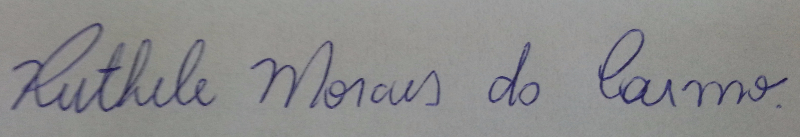 Ruthele Moraes do Carmo.